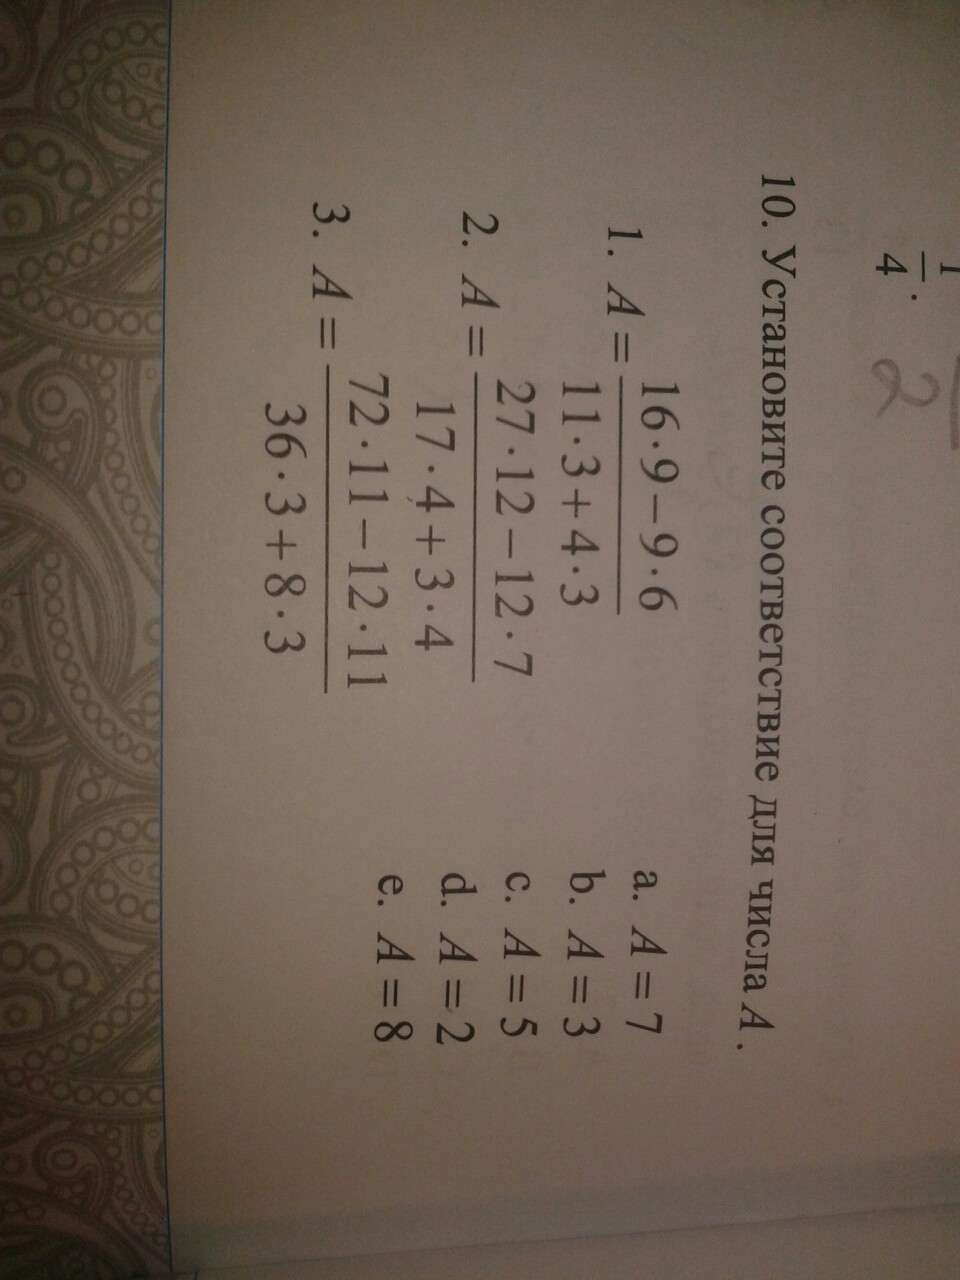 1
4 .
2
10. Установите соответствие для числа A .
1. A = 16·9−9·6
11·3+4·3
2. A = 27·12−12·7
17·4+3·4
3. A = 72·11−12·11
36·3+8·3
a. A = 7
b. A = 3
c. A = 5
d. A = 2
e. A = 8